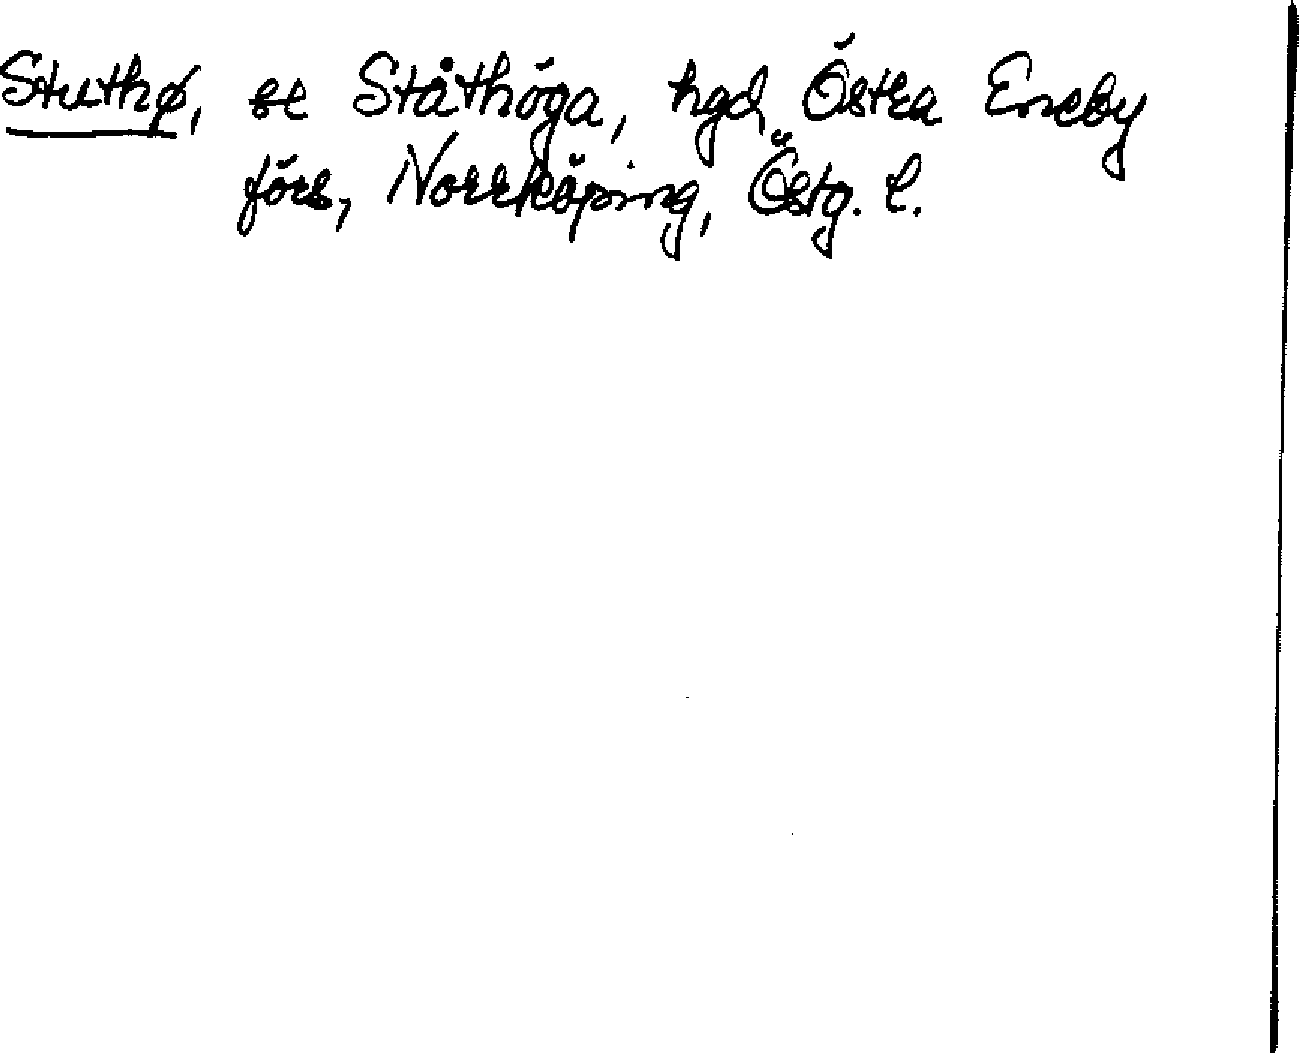 Stuthø, se Ståthöga, hgd, Östra Eneby
förs, Norrköping, Östg. l.